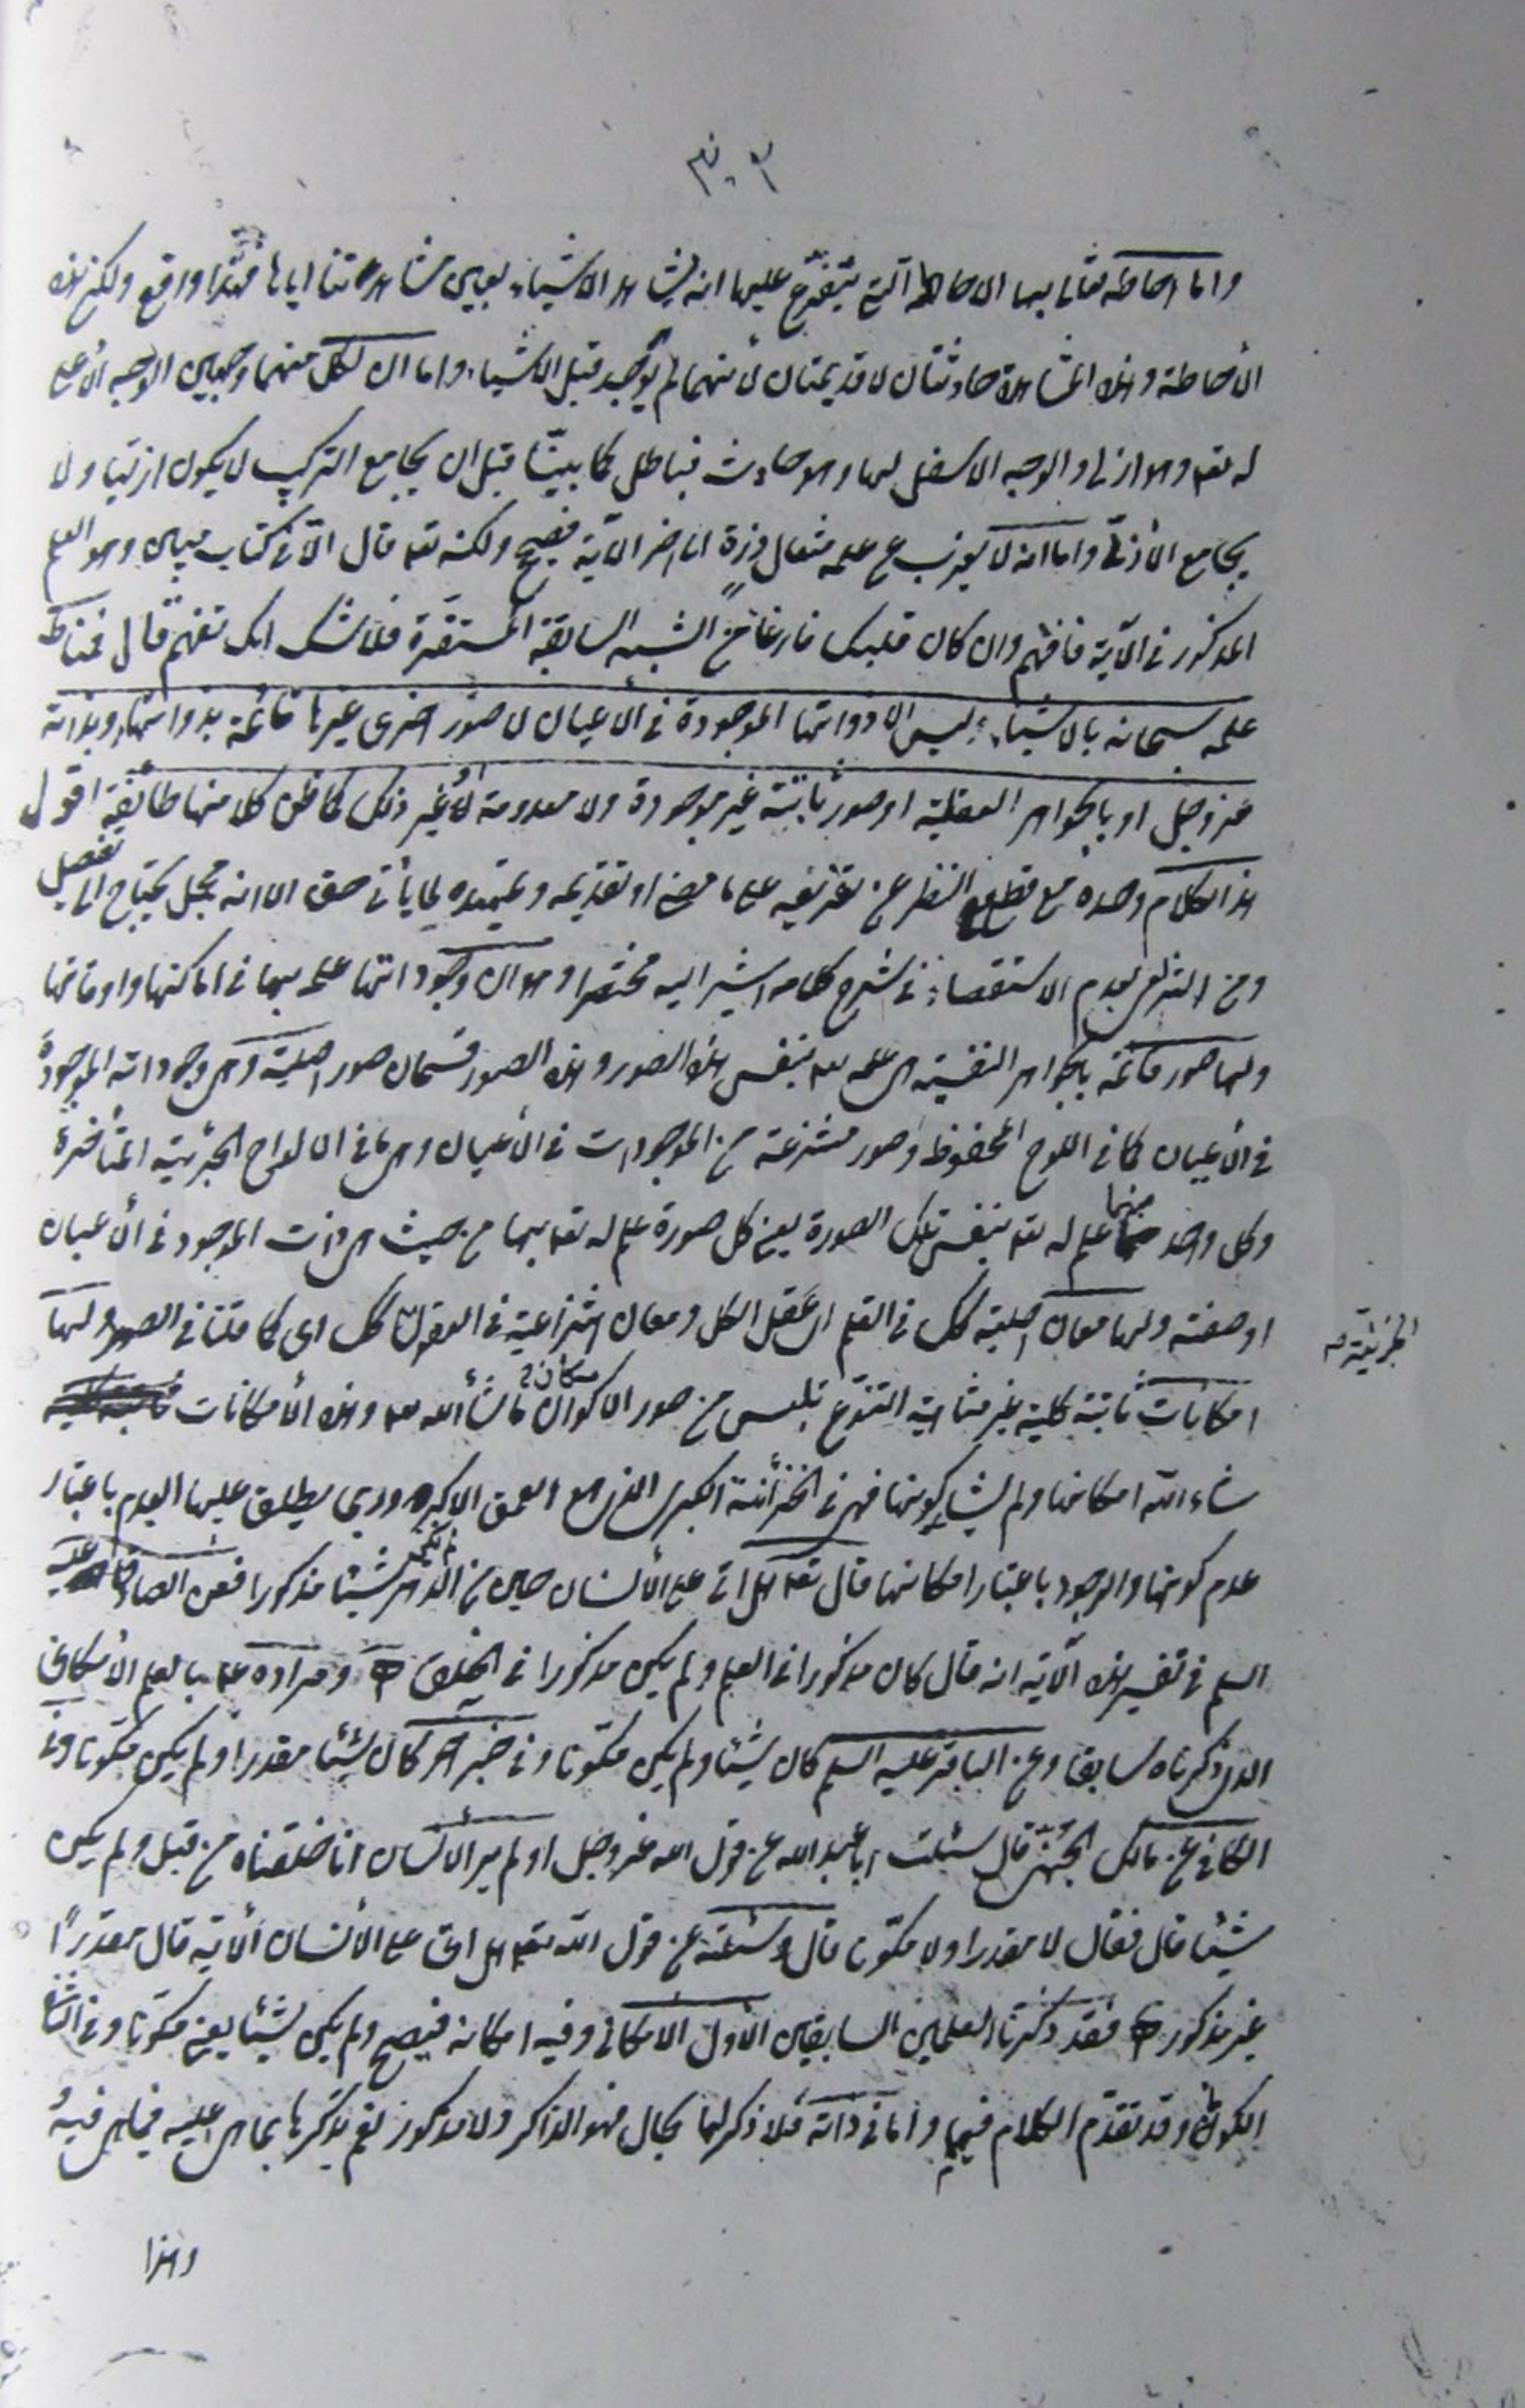 ٣٠٢
واما احاطته تعالى بها الاحاطة التي يتفرع عليها انه يشاهد الاشياء بعين مشاهدتنا اياها فهذا واقع ولكن هذه
الأحاطة وهذه المشاهدة حادثتان لا قديمتان لأنهما لم يوجد قبل الاشياء واما ان لكل منهما وجهين الوجه الأعلى
له تعه وهو ازلي والوجه الاسفل لها وهو حادث فباطل كما بينّا قبل ان يجامع التركيب لا يكون ازليا ولا
يجامع الأزلي واما انه لا يعزب عن علمه مثقال ذرة الى اخر الآية فصحيح ولكنه تعه قال الّا في كتاب مبين وهو العلم
المذكور في الآية فافهم وان كان قلبك فارغا من الشبه السابقة المستقرة فلا شك انك تفهم قال فمناط
علمه سبحانه بالاشياء ليس الا ذواتها الموجودة في الأعيان لا صور اخرى غيرها قائمة بذواتها او بذاته
عز وجل او بالجواهر العقلية او صور ثابتة غير موجودة ولا معدومة او غير ذلك كما ظن كلا منها طائفة اقول
هذا الكلام وحده مع قطع النظر عن تفريعه على ما مضى او تقديمه وتمهيده لما يأتي حق الا انه مجمل يحتاج الى تفصيل
ومن التزامي بعدم الاستقصاء في شرح كلامه اشير اليه مختصرا وهو ان وجوداتها علمه بها في اماكنها واوقاتها
ولها صور قائمة بالجواهر النفسية هي علمه تعه بنفس هذه الصور وهذه الصور قسمان صور اصلية وهي وجوداته الموجودة
في الأعيان كما في اللوح المحفوظ وصور منتزعة من الموجودات في الأعيان وهي ما في الالواح الجزئية المتأخرة
وكل واحد منهما علم له تعه بنفس تلك الصورة يعني كل صورة علم له تعه بها من حيث هي ذات الموجود في الأعيان
او صفته ولها معان اصلية كك في القلم اي عقل الكل ومعان انتزاعية في العقول كك اي كما قلنا في الصور ولها
الجزئية صه
امكانات ثابتة كلية غير متناهية التنوع تلبس من صور الاكوان ما شاء الله تعه وهذه الأمكانات
شاء الله امكانها ولم يشأ كونها فهي في الخزانة الكبرى التي هي العمق الاكبر يطلق عليها العدم باعتبار
عدم كونها والوجود باعتبار امكانها قال تعه هل اتى على الأنسان حين من الدهر لم يكن شيئا مذكورا فعن الصادق عليه
السلم في تفسير هذه الآية انه قال كان مذكورا في العلم ولم يكن مذكورا في الخلق ومراده عه بالعلم الأمكاني
الذي ذكرناه سابقا وعن الباقر عليه السلم كان شيئا ولم يكن مكوّنا وفي خبر اخر كان شيئا مقدرا ولم يكن مكونا وفي
الكافي عن مالك الجهني قال سئلت ابا عبد الله عن قول الله عز وجل اولم ير الأنسان انا خلقناه من قبل ولم يكن
شيئا قال فقال لا مقدرا ولا مكوّنا قال وسئلته عن قول الله تعه هل اتى على الأنسان الآية قال مقدرًا
غير مذكور فقد ذكرنا العلمين السابقين الأول الامكاني وفيه امكانه فيصح ولم يكن شيئا يعني مكونا وفي الثاني
الكوني وقد تقدم الكلام فيهما واما في ذاته فلا ذكر لها بحال فهو الذاكر ولا مذكور نعم يذكرها بما هي عليه فيما هي فيه
وهذا